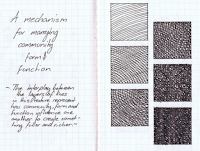 A mechanism
for managing
community
form &
function
- The interplay between
the layers of lines
in this texture represent
how community, form and
function influence one
another to create some-
thing fuller and richer -